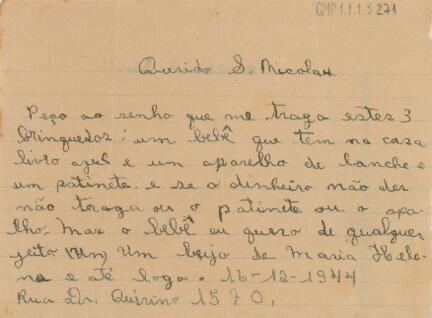 GMP1.1.1.3.271
Querido S. Nicolau
Peço ao senho que me traga estes 3
brinquedos: um bebê que tem na casa
livro azul e un aparelho de lanche e
um patinete. e se o dinheiro não der
não traga ou o patinete ou o apa-
lho. Mas o bebê eu quero de qualquer
jeito Um beijo de Maria Hele-
na e até logo. 16-12-1944
Rua Dr. Quirino 1570,